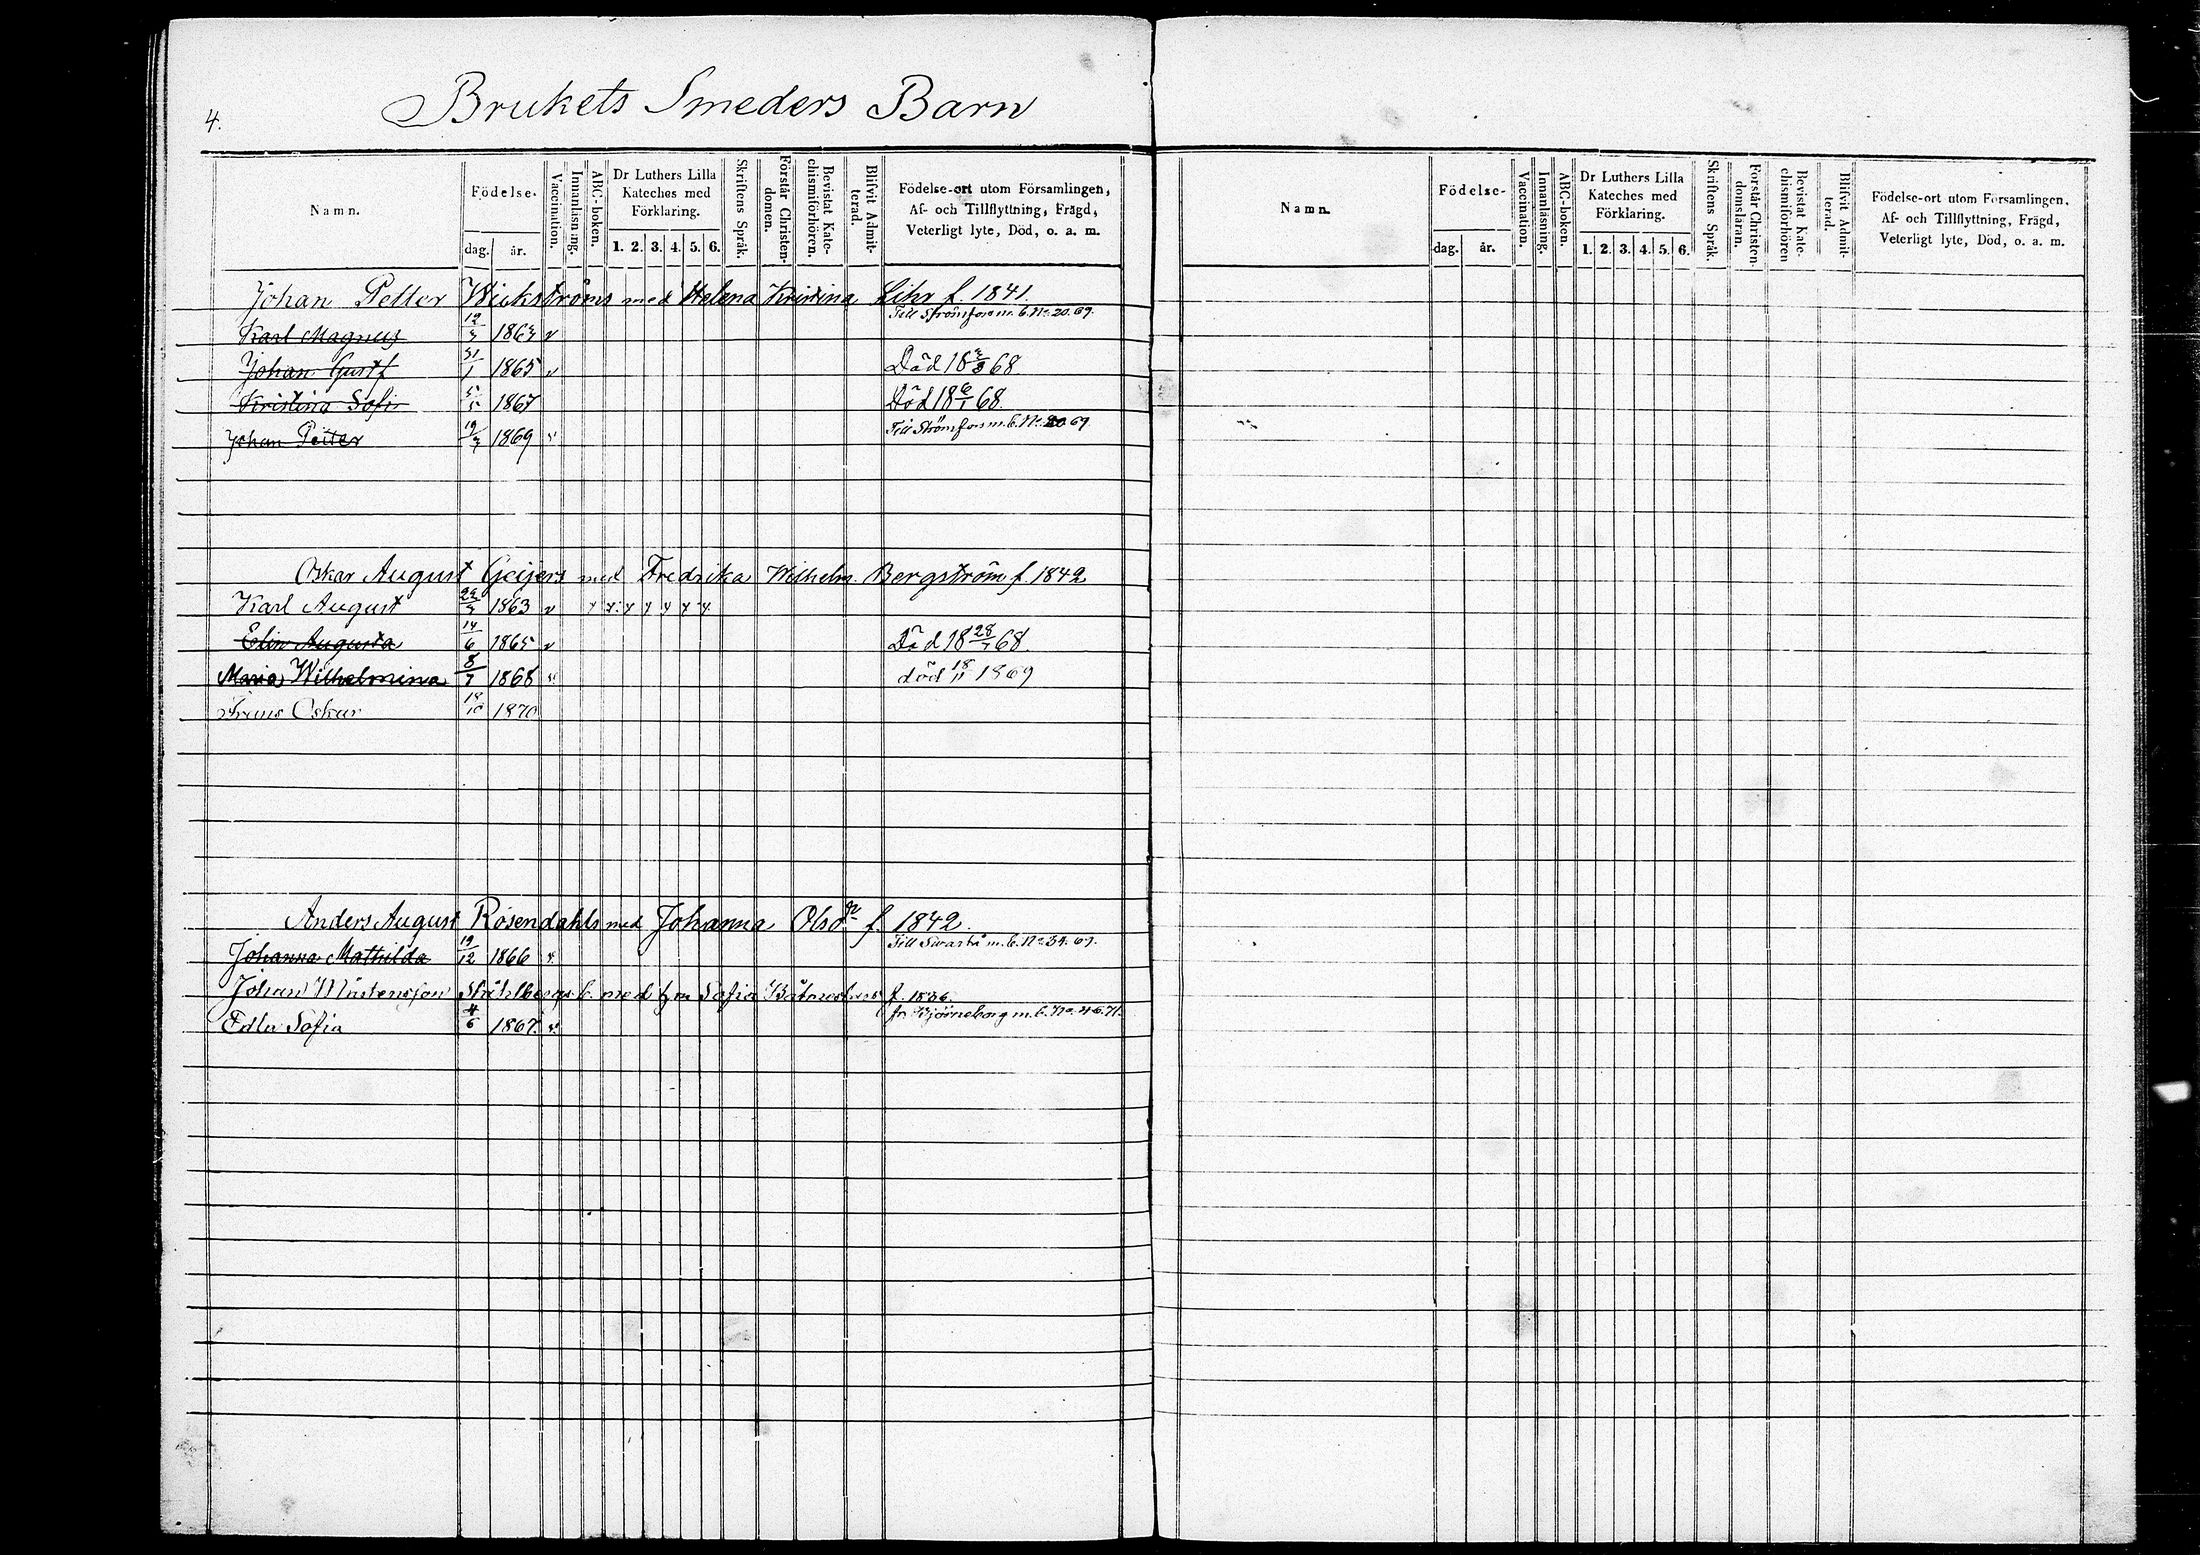 4.
Brukets Smeders Barn
Namn.
Födelse-
dag.
år.
Vaccination.
Innanläsning.
ABC-boken.
Dr Luthers Lilla
Kateches med
Förklaring.
1. 2. 3. 4. 5. 6.
Skriftens Språk.
Förstår Christen-
domen.
Bevistat Kate-
chismiförhören.
Blifvit Admit-
terad.
Födelse-ort utom Församlingen,
Af- och Tillflyttning, Frägd,
Veterligt lyte, Död, o. a. m.
Johan Petter Wickströms med Helena Kristina Lihr f. 1841.
Karl Magnus 12/3 1863 v Till Strömfors m. b. No. 20. 69.
Johan Gustf 31/1 1865 v Död 18 3/3 68
Kristina Sofi 5/5 1867 Död 18 6/1 68.
Johan Petter 19/3 1869 v Till Strömfors m. b. No. 20 69.
Oskar August Geijers med Fredrika Wilhelm. Bergström f. 1842
Karl August 22/3 1863 v
Elin Augusta 14/6 1865 v Död 18 28/1 68.
Maria Wilhelmina 8/7 1868 v död 18/11 1869
Frans Oskar 18/10 1870
Anders August Rosendahls med Johanna f. 1842.
Johanna Mathilda 19/12 1866 v. Till Swartå m. b. No 34. 69.
Johan Mårtensson Ståhlbergs b. med Sofia f. 1836.
Edla Sofia 4/6 1867. v. fr. Björneborg m. b. No. 46. 71.
Namn.
Födelse-
dag.
år.
Vaccination.
Innanläsning.
ABC-boken.
Dr Luthers Lilla
Kateches med
Förklaring.
1. 2. 3. 4. 5. 6.
Skriftens Språk.
Förstår Christen-
domsläran.
Bevistat Kate-
chismiförhören
Blifvit Admit-
terad.
Födelse-ort utom Församlingen,
Af- och Tillflyttning, Frägd,
Veterligt lyte, Död, o. a. m.